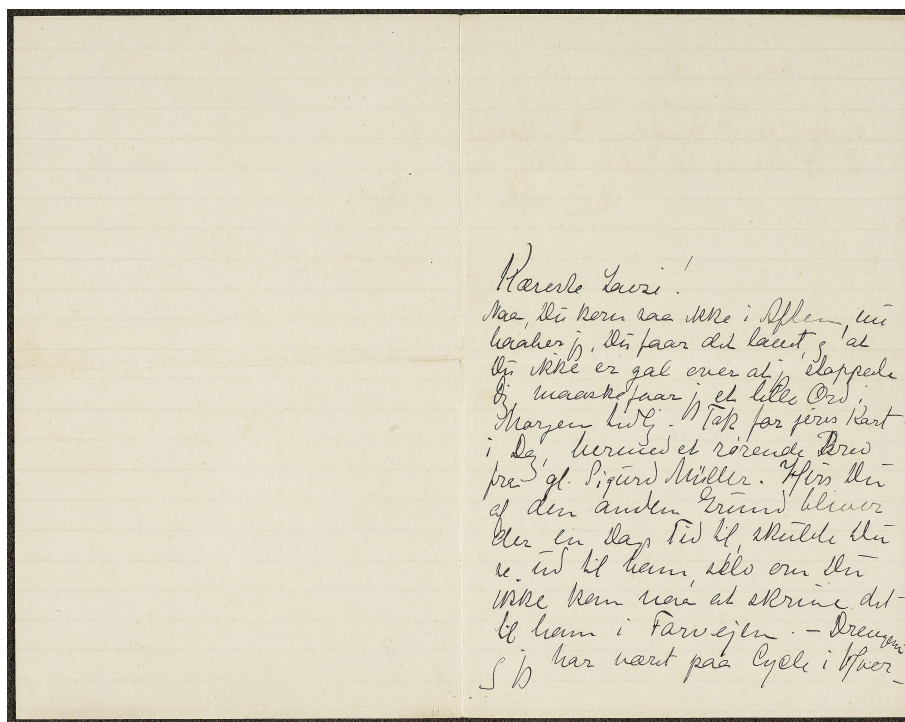 Kæreste Lavsi!
Naa, Du kom saa ikke i Aften, nu
haaber jeg, Du faar det lavet, og at
Du ikke er gal over at jeg stoppede
Dig, maaske faar jeg et lille Ord i
Morgen tidlig. Tak for jeres Kort
i Dag, hermed et rørende Brev
fra gl. Sigurd Müller. Hvis Du
af den anden Grund bliver
der en Dags Tid til, skulde Du
se ud til ham, selv om Du
ikke kan naa at skrive det
til ham i Forvejen. – Drengene
og jeg har været paa Cycle i Hver-